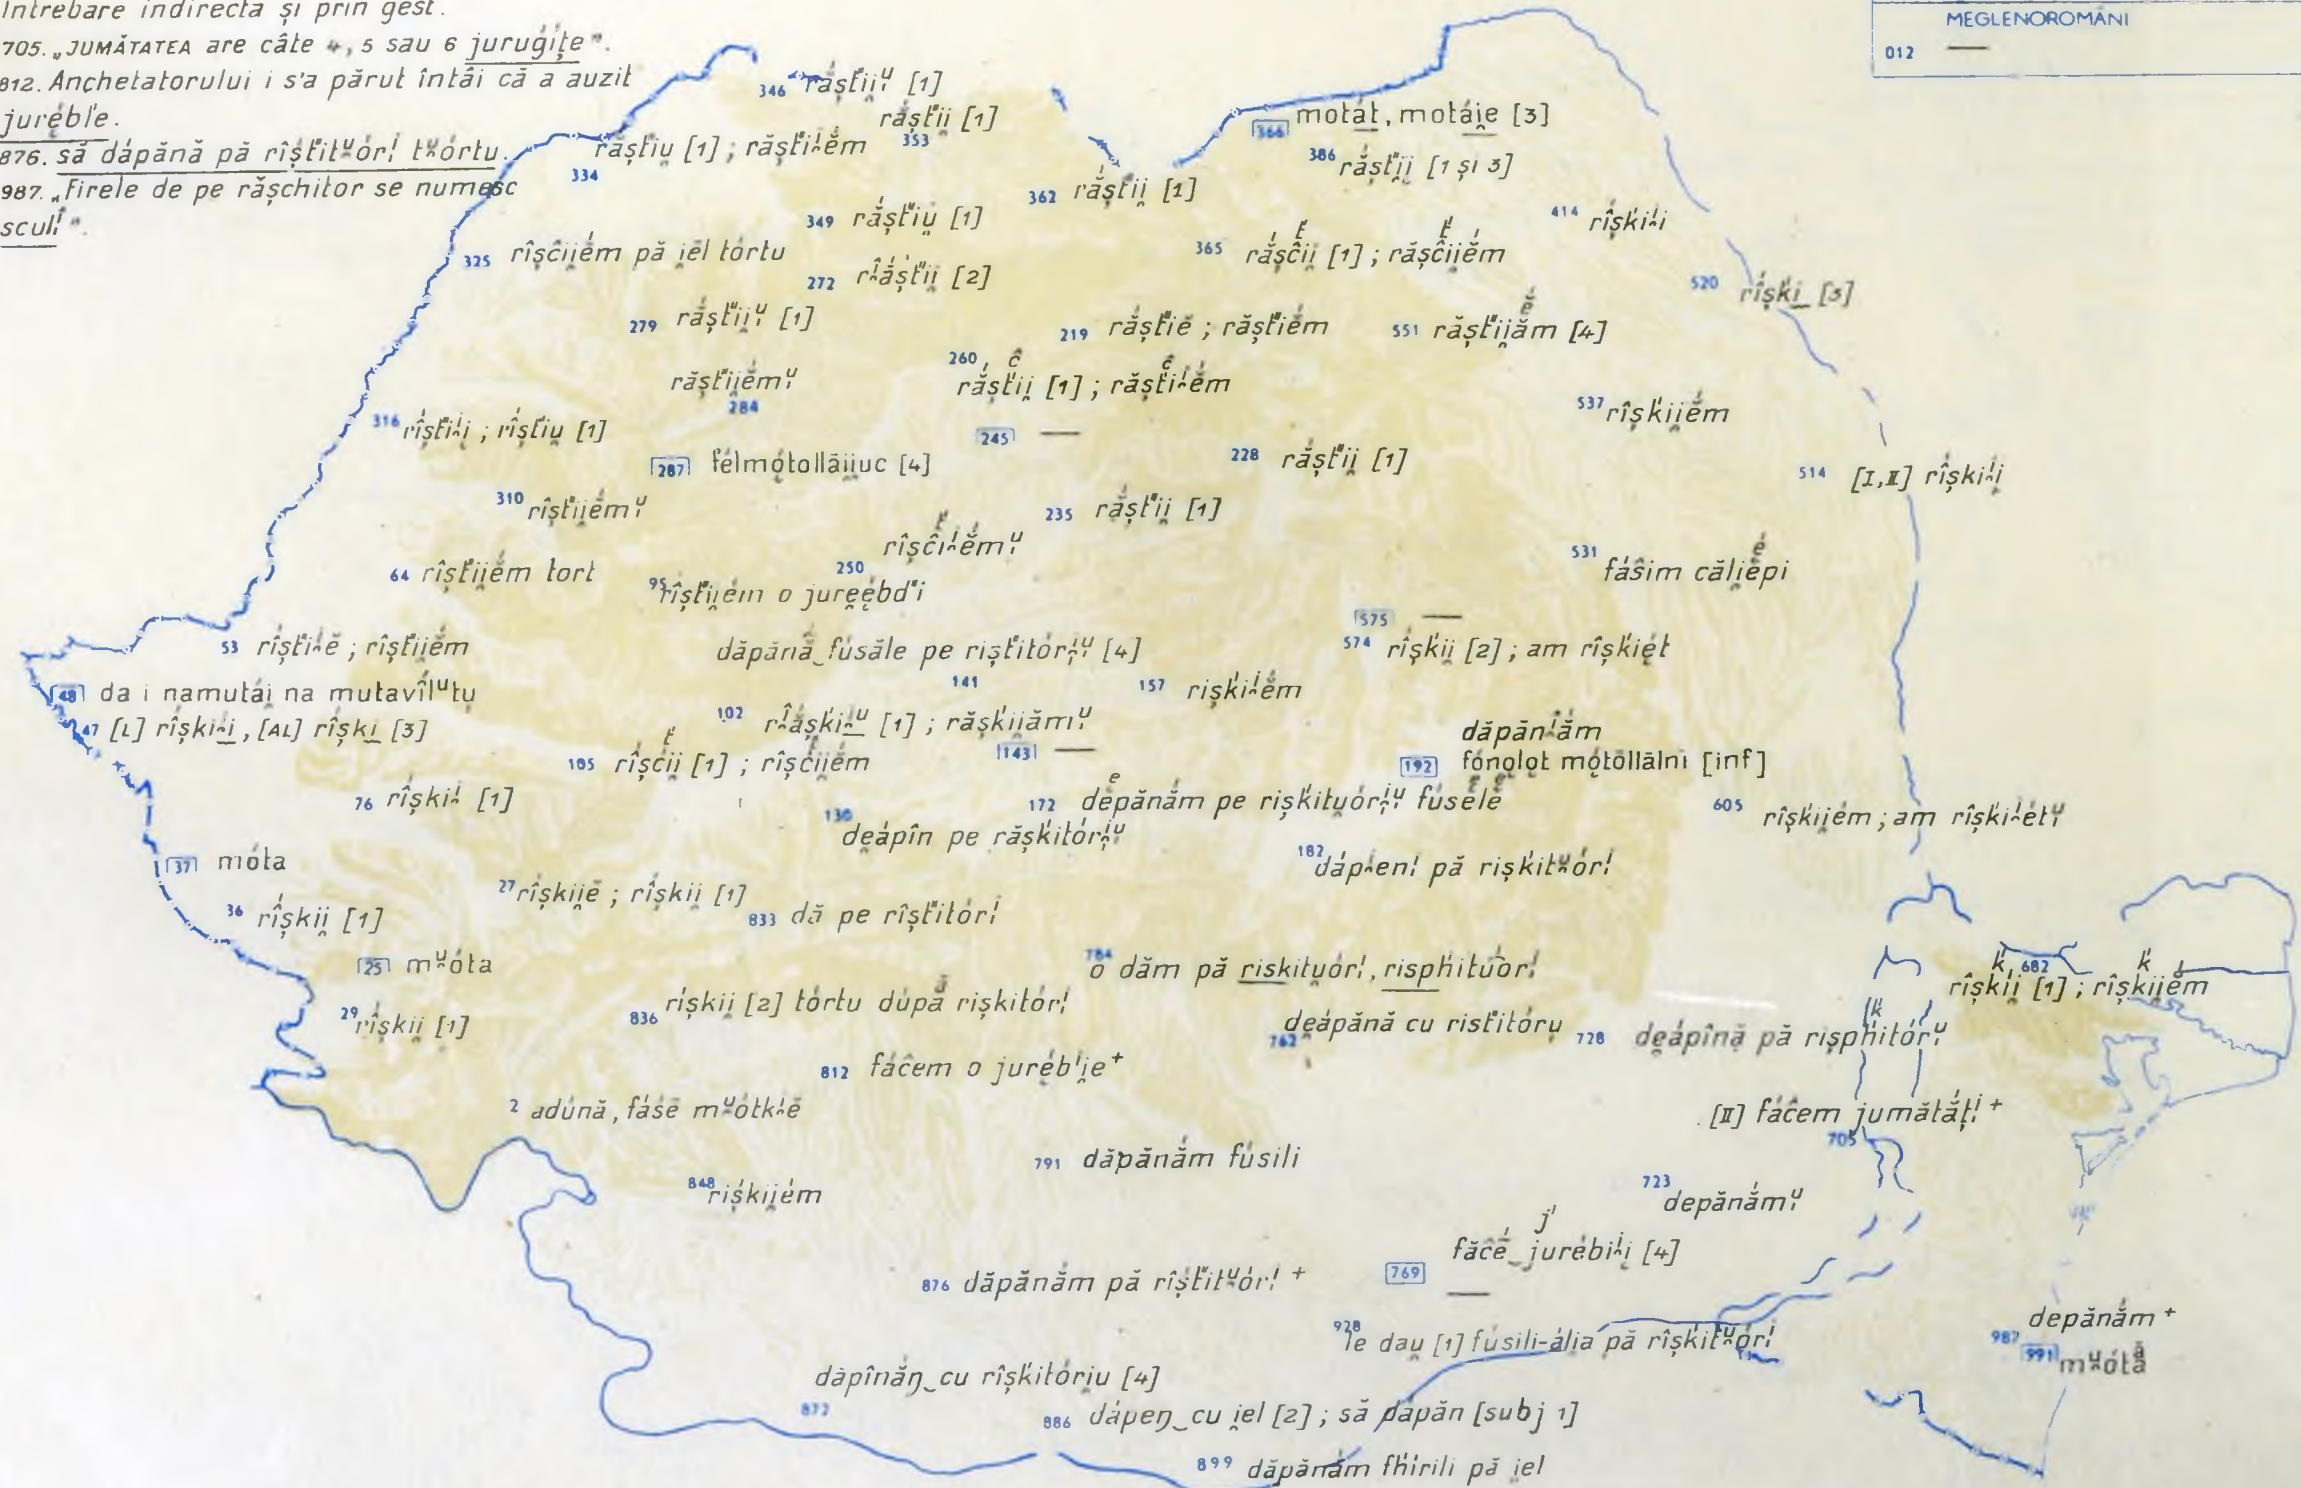 Întrebare indirectă și prin gest.
705. „JUMĂTATEA are câte 4, 5 sau 6 jurugițe”.
812. Anchetatorului i s'a părut întâi că a auzit
juréble.
876. să dápănă pă rîșt́itu̯órĭ tu̯órtu.
987. „Firele de pe rășchitor se numesc
sculĭ”.
MEGLENOROMÂNI
012 —
346 rắșt́ii̯ᵘ [1]
rắșt́ii̯ [1]
353
366 motát, motái̯e [3]
334 rắșt́iu [1] ; rășt́ii̯ém
386 rắșt́ii̯ [1 și 3]
362 rắșt́ii̯ [1]
349 rắșt́iu̯ [1]
414 rî́șḱii
325 rîșĉii̯ém pă i̯el tórtu
365 rắșĉii̯ [1] ; rășĉii̯ém
272 rắșt́ii̯ [2]
520 rî́șḱi [3]
279 rắșt́ii̯ᵘ [1]
219 rắșt́ie ; rășt́iém
551 rășt́ii̯ắm [4]
260 rắșt́ii̯ [1] ; rășt́ii̯ém
rășt́ii̯émᵘ
284
537 rîșḱii̯ém
316 rî́șt́ii̯ ; rî́șt́iu̯ [1]
245 —
287 félmo̜tollāi̯uc [4]
228 rắșt́ii̯ [1]
514 [I, II] rî́șḱii̯
310 rîșt́ii̯émᵘ
235 rắșt́ii̯ [1]
rîșĉii̯émᵘ
250
531 fáŝim căli̯épi
64 rîșt́ii̯ém tort
95 rîșt́ii̯ém o jure̯ébd́i
575 —
53 rî́șt́ie ; rîșt́ii̯ém
dăpănắ fúsăle pe rișt́itóri̯ᵘ [4]
141
574 rî́șḱii̯ [2] ; am rîșḱiét
48 da i namutái na mutavîlᵘtu
157 rișḱii̯ém
47 [L] rî́șḱii, [AL] rî́șḱi [3]
102 rắșḱiᵘ [1] ; rășḱii̯ắmᵘ
143 —
dăpănắm
192 fónolo̜t mo̜tōllālni [inf]
105 rî́șĉii̯ [1] ; rîșĉii̯ém
76 rî́șḱiĭ [1]
172 depănắm pe rișḱitu̯óri̯ᵘ fúsele
605 rîșḱii̯ém ; am rîșḱiétᵘ
130 de̯ápîn pe rășḱitóri̯ᵘ
37 móta
182 dápienĭ pă rișḱitu̯órĭ
27 rî́șḱii̯e ; rî́șḱii̯ [1]
36 rî́șḱii̯ [1]
833 dă pe rîșt́itórĭ
25 mᵘóta
784 o dăm pă riskitu̯órĭ, risphitu̯órĭ
682 rî́șḱii̯ [1] ; rîșḱii̯ém
836 rî́șḱii [2] tórtu dúpă rișḱitórĭ
29 rî́șḱii̯ [1]
762 de̯ápănă cu rist́itóru
728 de̯ápînă pă rișphitórᵘ
812 fáĉem o juréb'i̯e +
2 adúnă, fáse mᵘótḱe
[II] fáĉem jumătắțĭ +
705
791 dăpănắm fúsili
848 rișḱii̯ém
723 depănắmᵘ
făĉé jurébii̯ [4]
876 dăpănắm pă rîșt́itu̯órĭ +
769 —
928 le dau̯ [1] fúsili-ália pă rîșḱitu̯órĭ
depănắm +
987
991 mᵘótă
dăpînắŋ cu rîșḱitóriu [4]
872
886 dápeŋ cu i̯el [2] ; să dápăn [subj 1]
899 dăpănắm fhírili pă i̯el